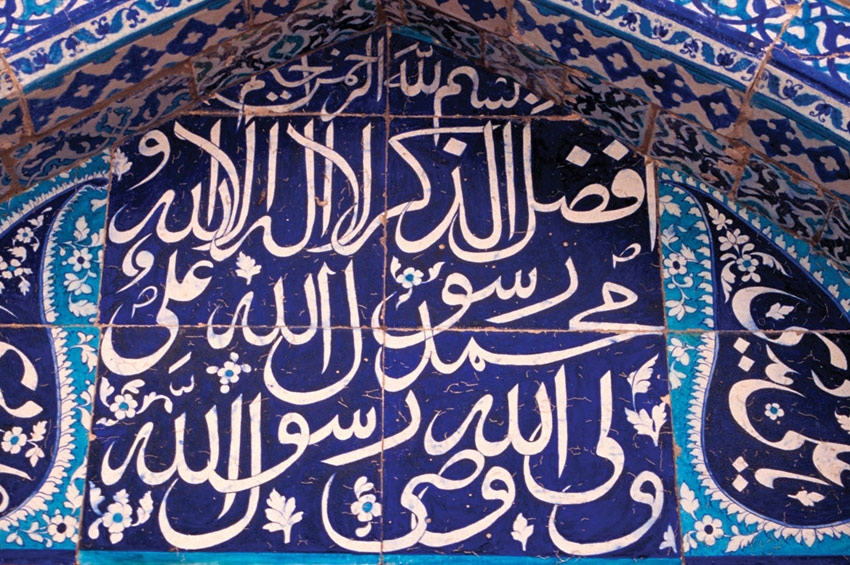 بسم الله الرحمن الرحيم
افضل الذكر لا اله الا الله و
محمد رسول الله علی
ولی الله وصی رسول الله